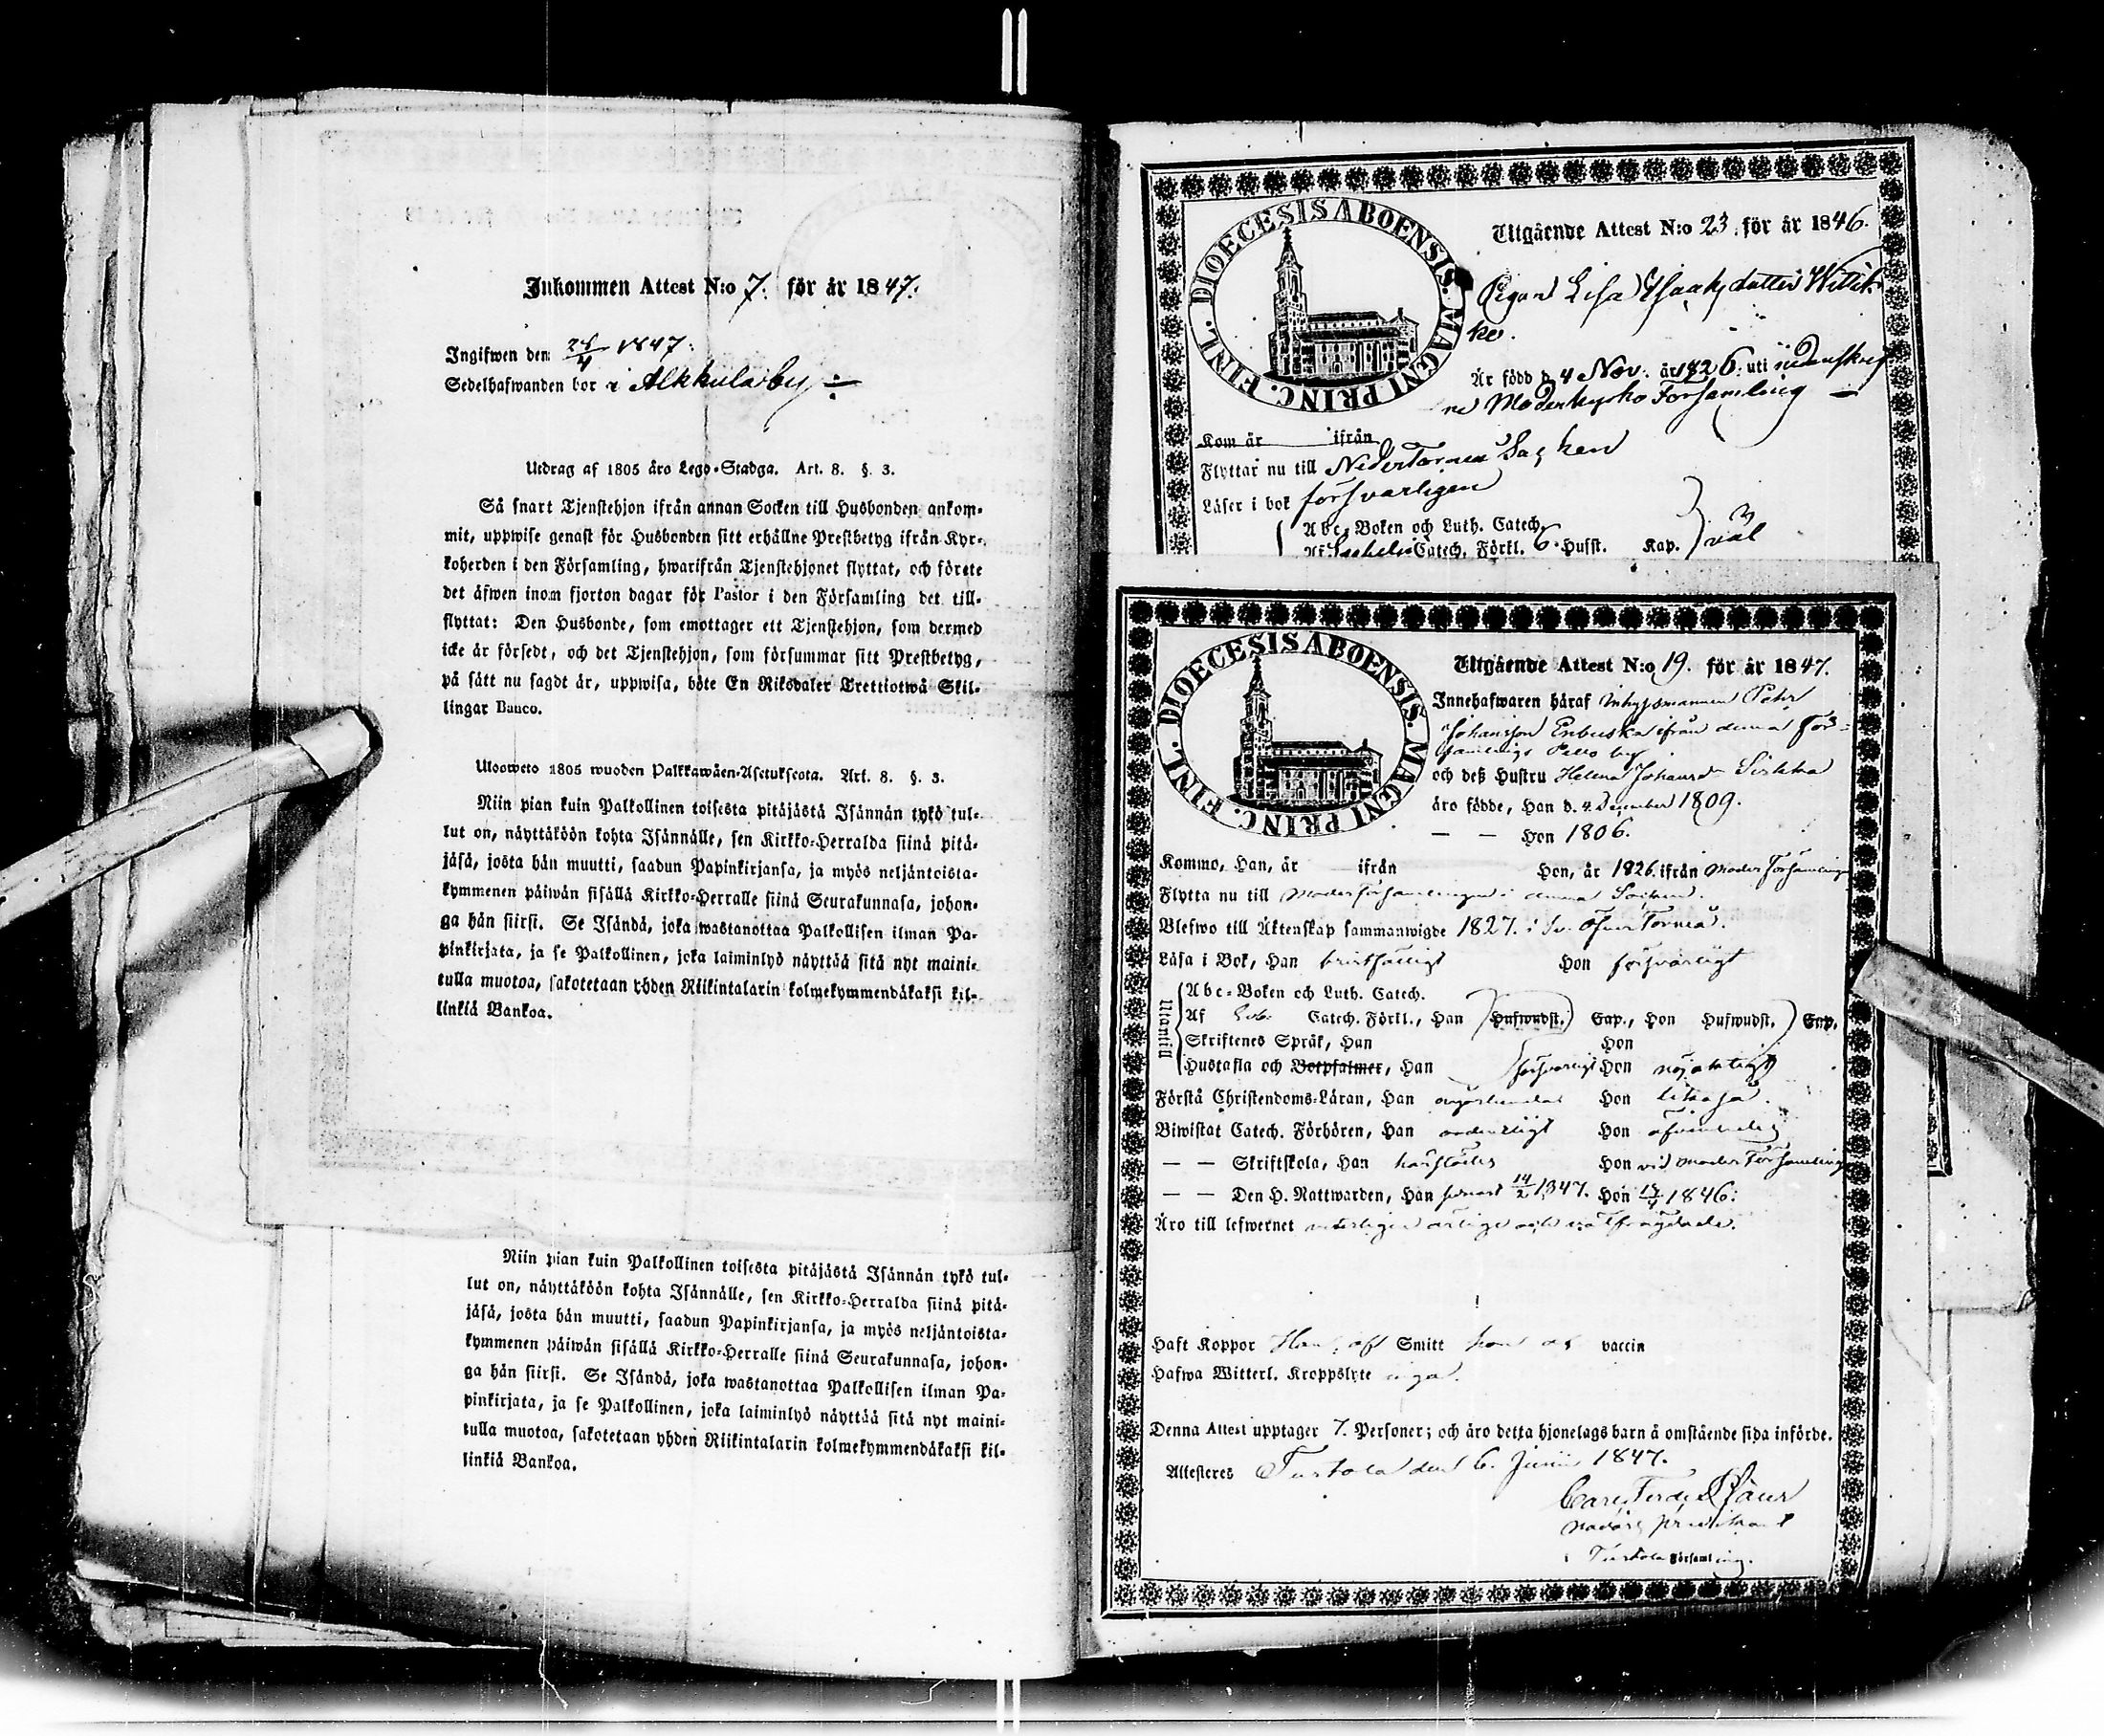 Inkommen Attest N:o 7. för år 1847.
Ingifwen den 28/4 1847.
Sedelhafwanden bor i Alkkula by
Utdrag af 1805 års Lego-Stadga. Art. 8. §. 3.
Så snart Tjenstehjon ifrån annan Socken till Husbonden ankom-
mit, uppwise genast för Husbonden sitt erhållne Prestbetyg ifrån Kyr-
koherden i den Församling, hwarifrån Tjenstehjonet flyttat, och förete
det äfwen inom fjorton dagar för Pastor i den Församling det till-
flyttat: Den Husbonde, som emottager ett Tjenstehjon, som dermed
icke är försedt, och det Tjenstehjon, som försummar sitt Prestbetyg,
på sätt nu sagdt är, uppwisa, böte En Riksdaler Trettiotwå Skil-
lingar Banco.
Ulooweto 1805 wuoden Palkkawäen-Asetuksesta. Art. 8. §. 3.
Niin pian kuin Palkollinen toisesta pitäjästä Isännän tykö tul-
lut on, näyttäköön kohta Isännälle, sen Kirkko-Herralda siinä pitä-
jäsä, josta hän muutti, saadun Papinkirjansa, ja myös neljäntoista-
kymmenen päiwän sisällä Kirkko-Herralle siinä Seurakunnasa, johon-
ga hän siirsi. Se Isändä, joka wastanottaa Palkollisen ilman Pa-
pinkirjata, ja se Palkollinen, joka laiminlyö näyttää sitä nyt maini-
tulla muotoa, sakotetaan yhden Riikintalarin kolmekymmendäkaksi kil-
linkiä Bankoa.
Niin pian kuin Palkollinen toisesta pitäjästä Isännän tykö tul-
lut on, näyttäköön kohta Isännälle, sen Kirkko-Herralda siinä pitä-
jäsä, josta hän muutti, saadun Papinkirjansa, ja myös neljäntoista-
kymmenen päiwän sisällä Kirkko-Herralle siinä Seurakunnasa, johon-
ga hän siirsi. Se Isändä, joka wastanottaa Palkollisen ilman Pa-
pinkirjata, ja se Palkollinen, joka laiminlyö näyttää sitä nyt maini-
tulla muotoa, sakotetaan yhden Riikintalarin kolmekymmendäkaksi kil-
linkiä Bankoa.
DIOECESIS ABOENSIS. MAGNI PRINC. FINL.
Utgående Attest N:o 23. för år 1846.
Pigan Lisa Isaaksdotter Wittik
ko.
Är född d. 4 Nov. år 1826. uti nedanskrif
ne Moderkyrko Församling
Kom år ifrån
Flyttar nu till NederTorneå Socken
Läser i bok försvarligen
Abc-Boken och Luth. Catech.
Af Catech. Förkl. 6. Husst. Kap. väl
DIOECESIS ABOENSIS. MAGNI PRINC. FINL.
Utgående Attest N:o 19. för år 1847.
Innehafwaren häraf Inhysesmannen Pehr
Johansson Enbuska ifrån denna För-
samlings Pello by
och deß Hustru Helena Johansdr Sirkka
äro födde, Han d. 4 December 1809.
— — Hon 1806.
Kommo, Han, år ifrån Hon, år 1826. ifrån Moder Församlingen
Flytta nu till Moderförsamlingen i denna Socken.
Blefwo till Äktenskap sammanwigde 1827. i Öfver Torneå.
Läsa i Bok, Han bristfälligt Hon försvarligt
Utantill
Abc-Boken och Luth. Catech.
Af Catech. Förkl., Han Huswudst. Cap., Hon Hufwudst. Cap.
Skriftenes Språk, Han Hon
Hustafla och Botpsalmer, Han försvarligt Hon nöjaktigt
Förstå Christendoms-Läran, Han Hon likaså.
Biwistat Catech. Förhören, Han ordentligt Hon
— — Skriftskola, Han härstädes Hon vid Moder Församling
— — Den H. Nattwarden, Han senast 14/2 1847. Hon 1846.
Äro till lefwernet ärlige och välfrägdade.
Haft Koppor Han af Smitt hon af vaccin
Hafwa Witterl. Kroppslyte inga.
Denna Attest upptager 7. Personer; och äro detta hjonelags barn å omstående sida införde.
Attesteres Turtola den 6. Junii 1847.
Carl Ferd.
predikant
i Turtola Församling.